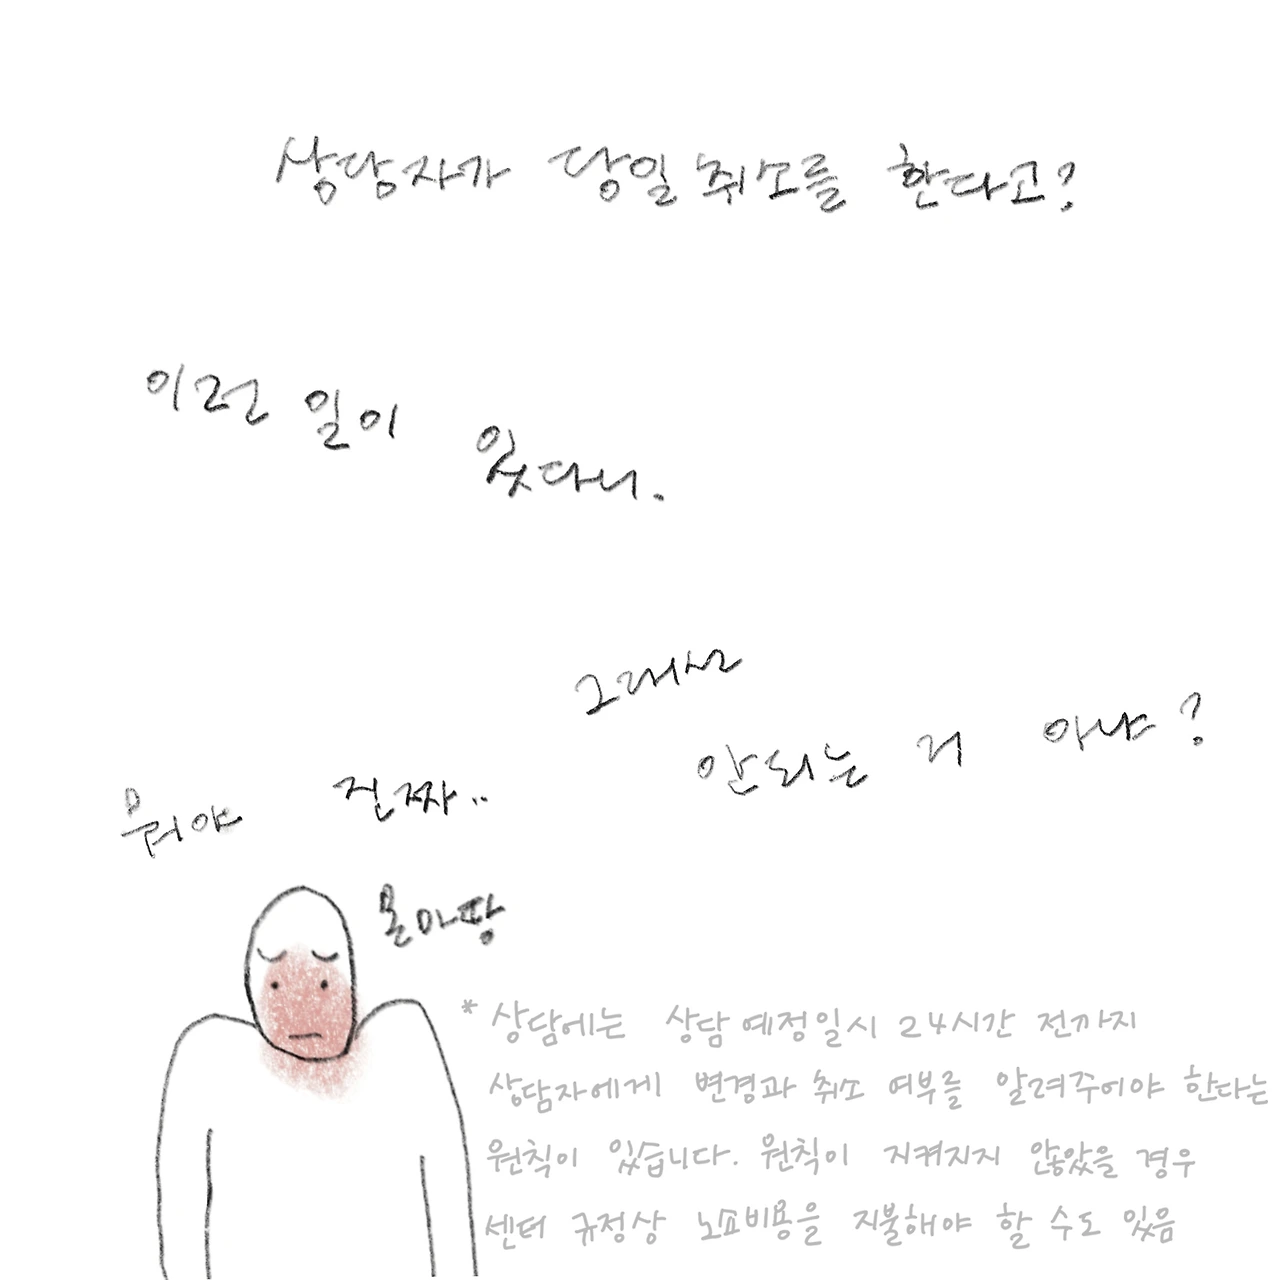 상담자가 당일취소를 한다고?
이런 일이 있다니.
그래선
안되는 거 아냐?
뭐야 진짜..
몬마땅
* 상담에는 상담예정일시 24시간 전까지
상담자에게 변경과 취소 여부를 알려주어야 한다는
원칙이 있습니다. 원칙이 지켜지지 않았을 경우
센터 규정상 노쇼비용을 지불해야 할 수도 있음